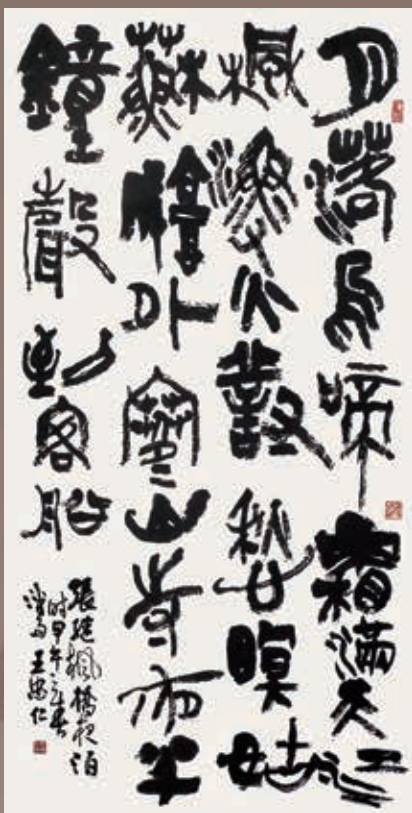 月落烏啼霜滿天江
楓漁火對愁瞑姑
蘇城外寒山寺夜半
鐘聲到客船
張繼楓橋夜泊
時甲午 春
王 仁